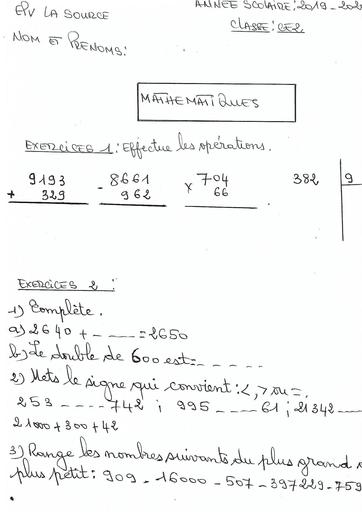 EPV LA SOURCE
ANNEE SCOLAIRE: 2019-202
CLASSE: CE2
NOM ET PRENOMS:
MATHEMATIQUES
EXERCICES 1: Effectue les opérations.
9193 8661 704 382 9
+ 329 - 962 x 66
EXERCICES 2:
1) Complète.
a) 2640 + ---- = 2650
b) Le double de 600 est: - - - - -
2) Mets le signe qui convient: <, > ou =.
253 ---- 742 ; 995 ---- 61 ; 21342 ----
21000 + 300 + 42
3) Range les nombres suivants du plus grand
plus petit: 909 - 16000 - 507 - 397229 - 759